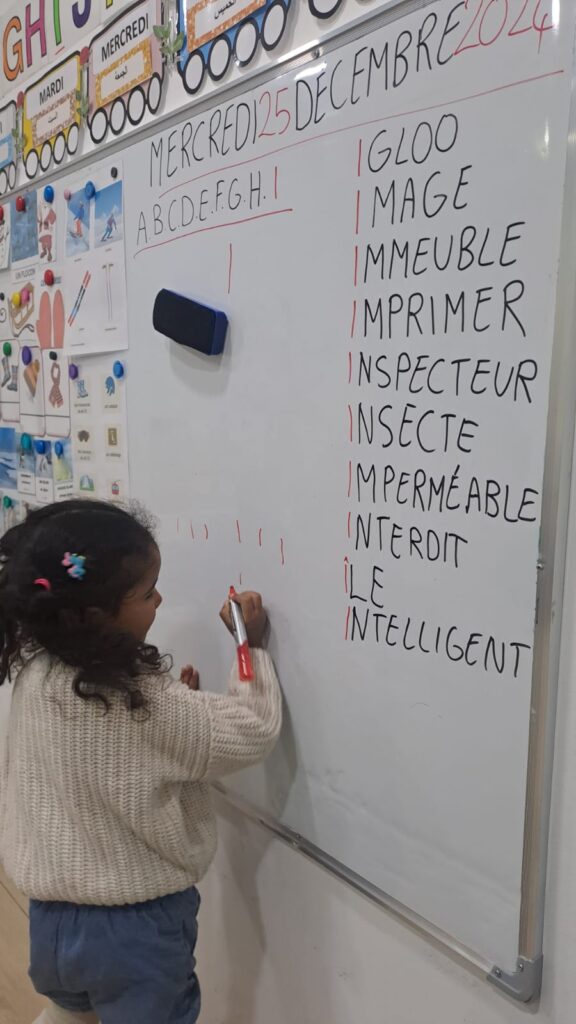 GHTS
MARDI
MERCREDI
MERCREDI 25 DECEMBRE 2024
A.B.C.D.E.F.G.H.I
I
IGLOO
IMAGE
IMMEUBLE
IMPRIMER
INSPECTEUR
INSECTE
IMPERMÉABLE
INTERDIT
ÎLE
INTELLIGENT